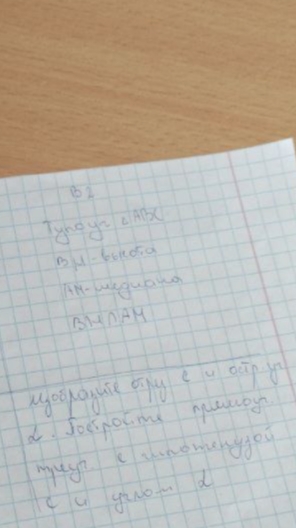 В 2
Тупоуг ∠ABC
BH - высота
AM - медиана
BH∩AM
изобразите отру c и остр уг
α. Постройте прямоуг.
треуг с гипотенузой
c и углом α